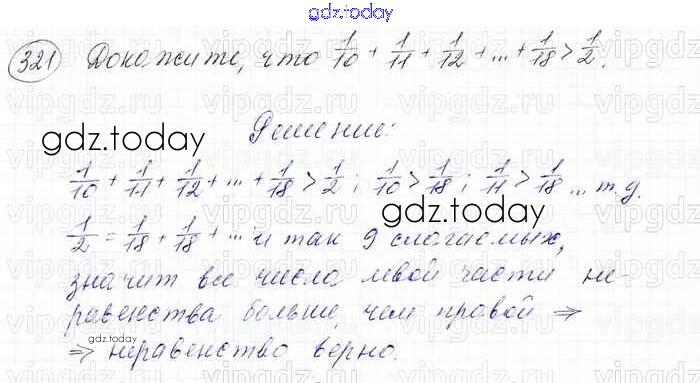 gdz.today
321 Докажите, что 1/10 + 1/11 + 1/12 + ... + 1/18 > 1/2.
Решение:
gdz.today
1/10 + 1/11 + 1/12 + ... + 1/18 > 1/2; 1/10 > 1/18; 1/11 > 1/18 ... т.д.
gdz.today
1/2 = 1/18 + 1/18 + ... и так 9 слогаемых,
значит все числа левой части не-
равенства больше, чем правой ⇒
gdz.today
⇒ неравенство верно.